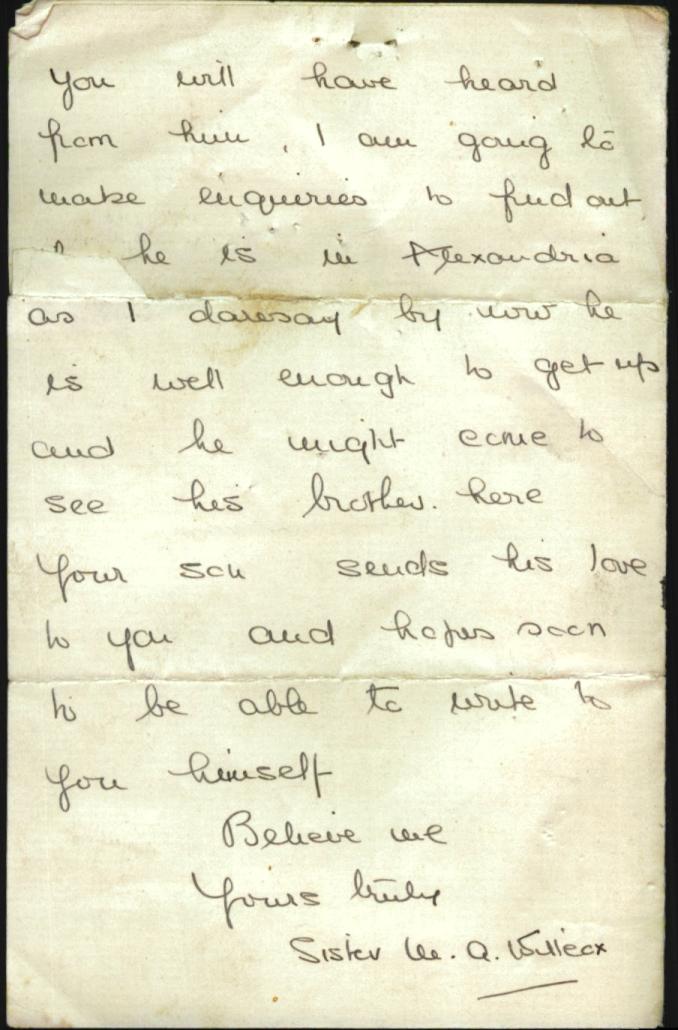 You will have heard
from him, I am going to
make enquiries to find out
he is in Alexandria
as I daresay by now he
is well enough to get up
and he might come to
see his brother. here
Your son sends his love
to you and hopes soon
to be able to write to
you himself
Believe me
Yours truly
Sister M. A.